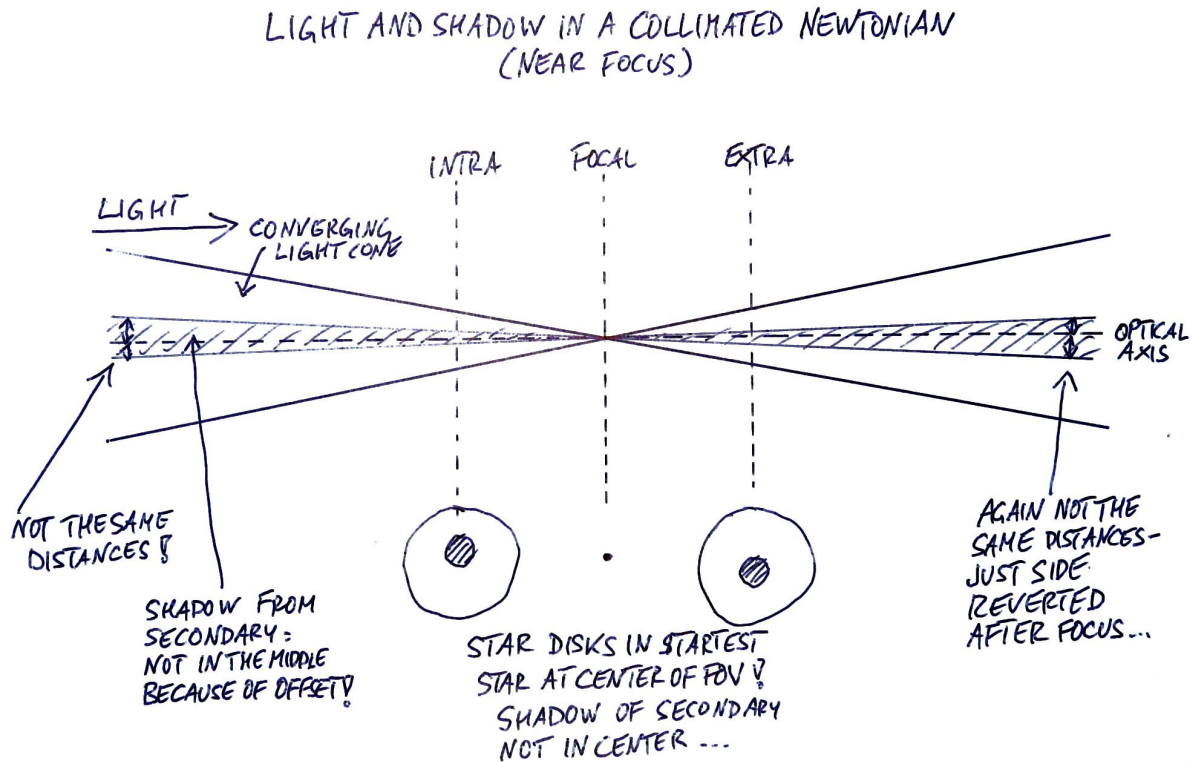 LIGHT AND SHADOW IN A COLLIMATED NEWTONIAN
(NEAR FOCUS)
INTRA
FOCAL
EXTRA
LIGHT
CONVERGING
LIGHTCONE
OPTICAL
AXIS
NOT THE SAME
DISTANCES!
SHADOW FROM
SECONDARY:
NOT IN THE MIDDLE
BECAUSE OF OFFSET!
STAR DISKS IN STARTEST
STAR AT CENTER OF FOV!
SHADOW OF SECONDARY
NOT IN CENTER ...
AGAIN NOT THE
SAME DISTANCES-
JUST SIDE
REVERTED
AFTER FOCUS...